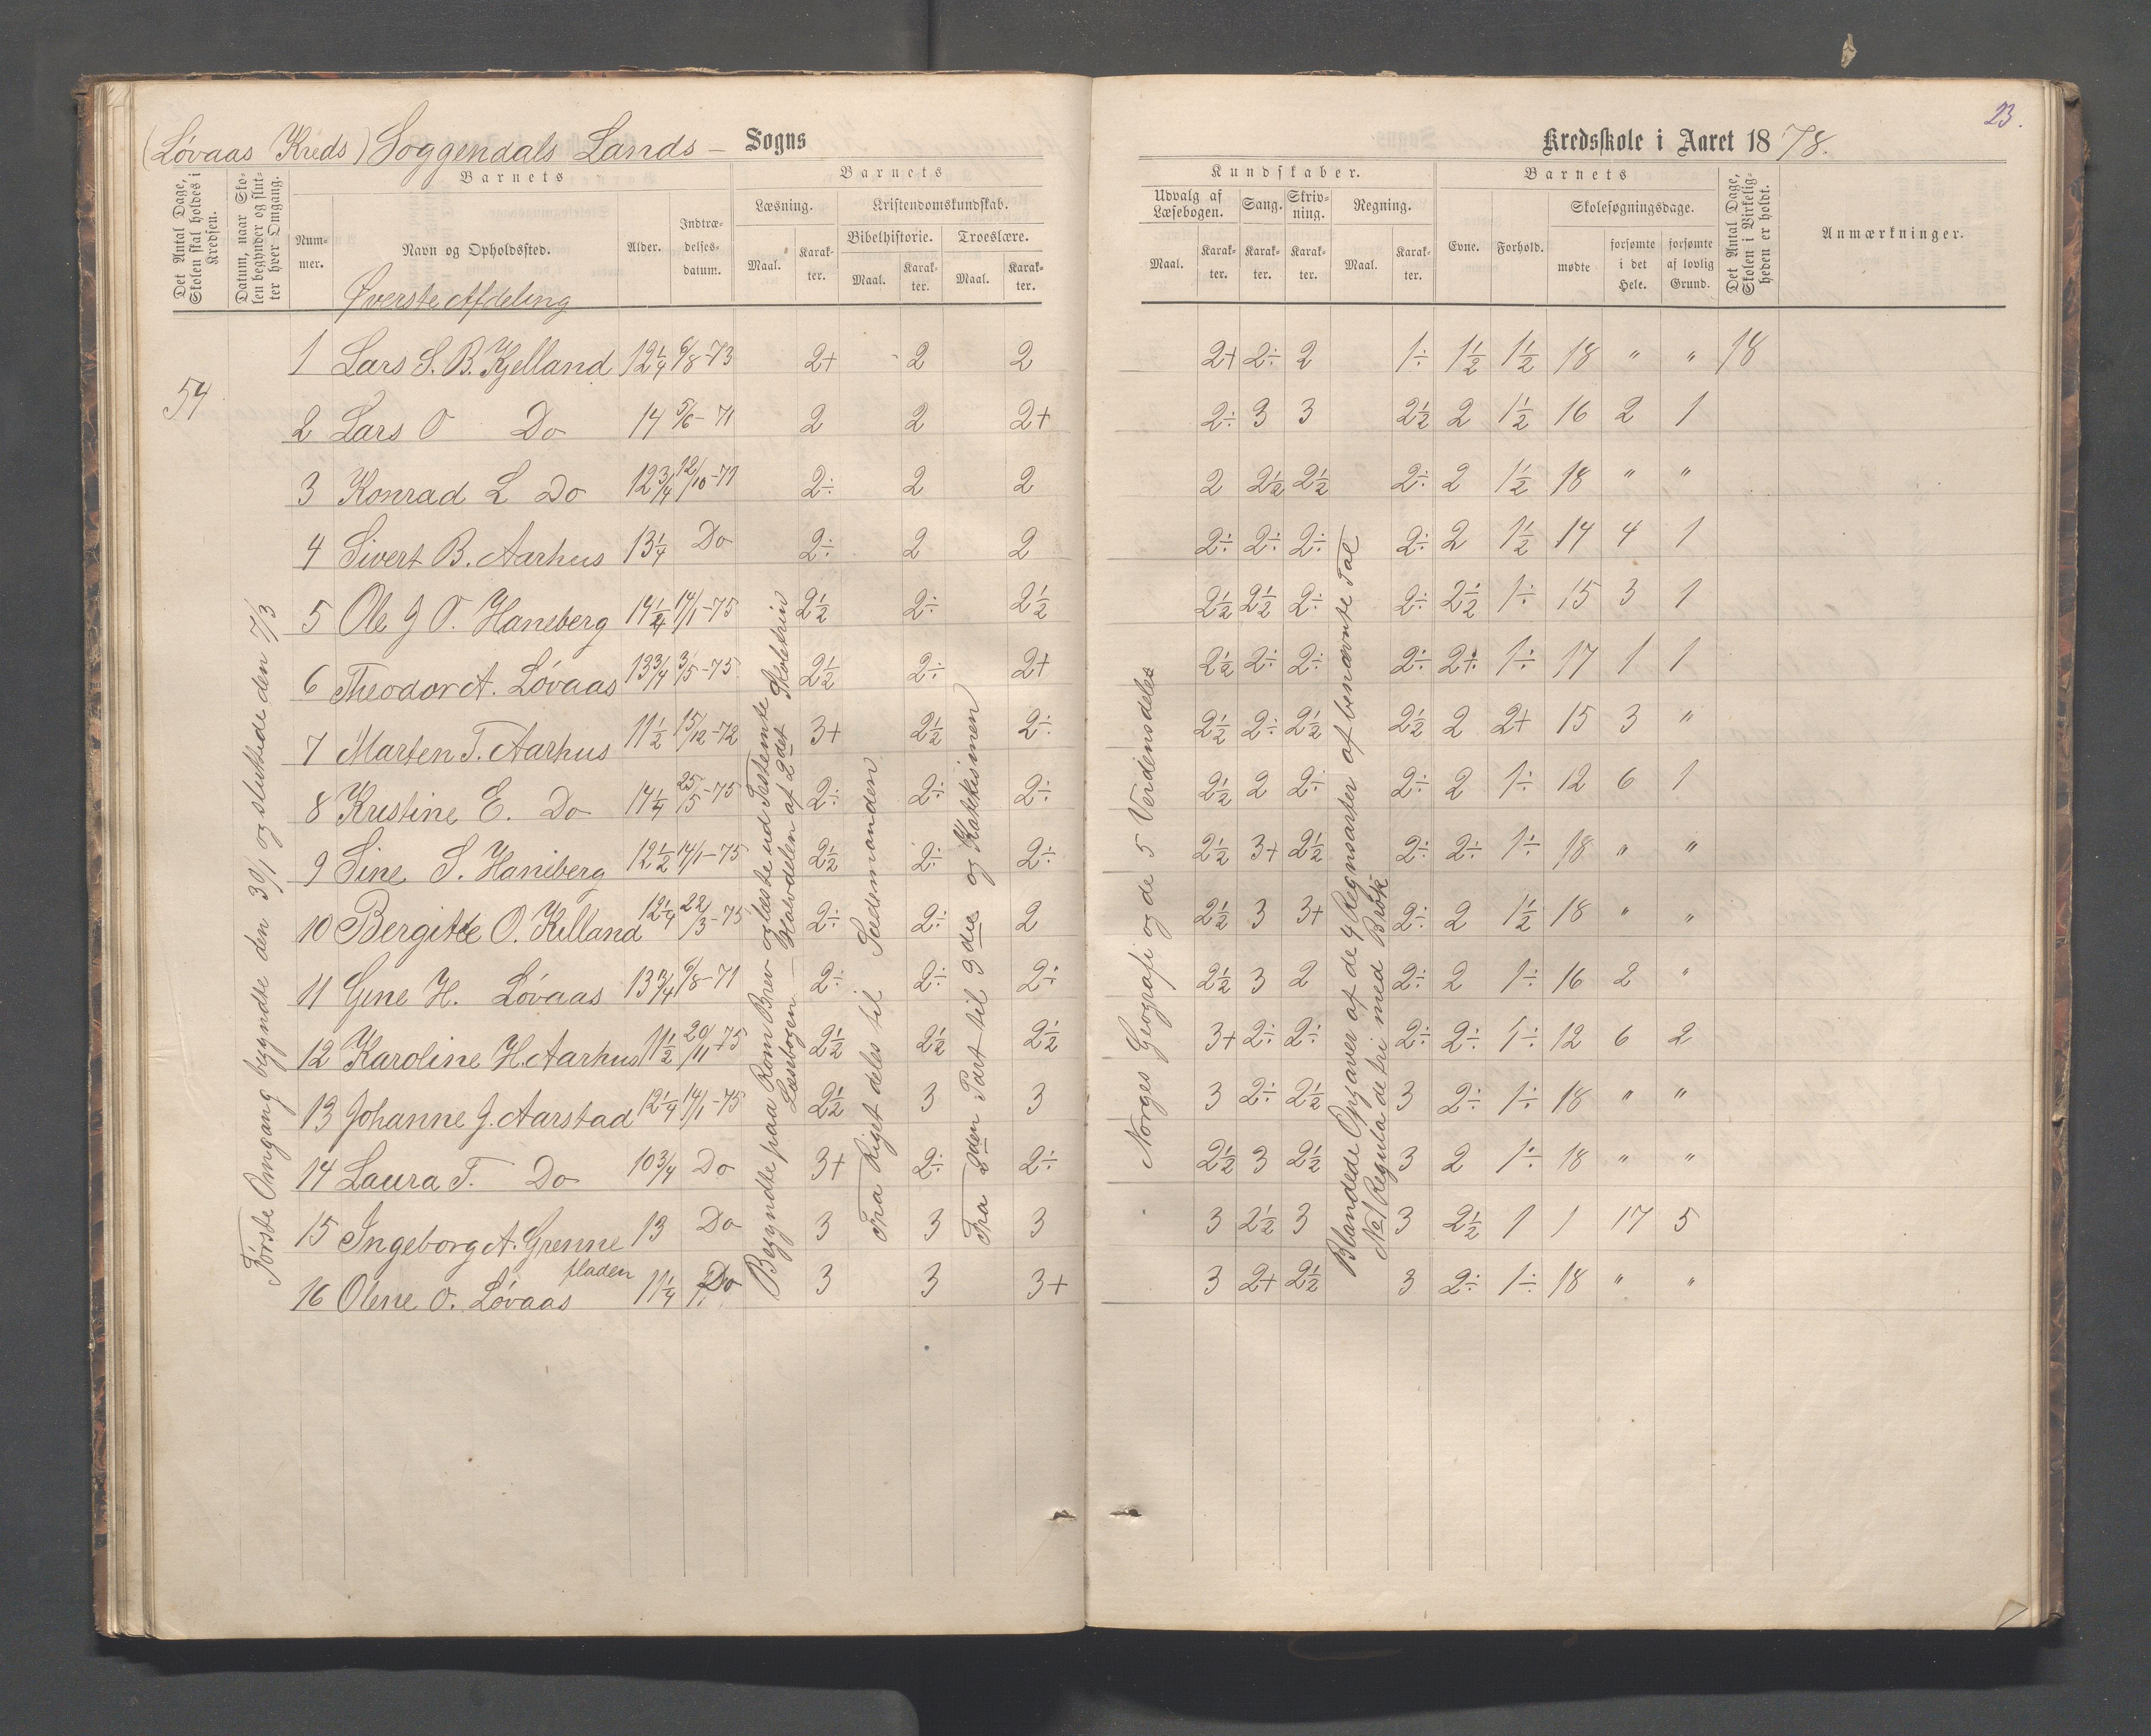 23.
(Løvaas Kreds) Soggendals Lands- Sogns Kredsskole i Aaret 1878.
Det Antal Dage, Skolen skal holdes i Kredsen.
Datum, naar Skolen begynder og slutter hver Omgang.
Barnets
Nummer.
Navn og Opholdssted.
Alder.
Indtrædelsesdatum.
Barnets
Læsning.
Maal.
Karakter.
Kristendomskundskab.
Bibelhistorie.
Maal.
Karakter.
Troeslære.
Maal.
Karakter.
Kundskaber.
Udvalg af Læsebogen.
Maal.
Karakter.
Sang.
Karakter.
Skrivning.
Karakter.
Regning.
Maal.
Karakter.
Barnets
Evne.
Forhold.
Skolesøgningsdage.
mødte
forsømte i det Hele.
forsømte af lovlig Grund.
Det Antal Dage, Skolen i Virkeligheden er holdt.
Anmærkninger.
Øverste Afdeling
54
1 Lars S. B. Kjelland 12 1/4 6/8-73 2+ 2 2 2+ 2÷ 2 1÷ 1 1/2 1 1/2 18 " " 18
2 Lars O Do 14 5/6-71 2 2 2+ 2÷ 3 3 2 1/2 2 1 1/2 16 2 1
3 Konrad L Do 12 3/4 12/10-71 2÷ 2 2 2 2 1/2 2 1/2 2÷ 2 1 1/2 18 " "
4 Sivert B. Aarhus 13 1/4 Do 2÷ 2 2 2÷ 2÷ 2÷ 2÷ 2 1 1/2 14 4 1
5 Ole J O. Haneberg 14 1/4 14/1-75 2 1/2 2÷ 2 1/2 2 1/2 2 1/2 2÷ 2÷ 2 1/2 1÷ 15 3 1
6 Theodor A. Løvaas 13 3/4 3/5-75 2 1/2 2÷ 2+ 2 1/2 2÷ 2÷ 2÷ 2+ 1÷ 17 1 1
7 Marten T. Aarhus 11 1/2 15/12-72 3+ 2 1/2 2÷ 2 1/2 2÷ 2 1/2 2 1/2 2 2+ 15 3 "
8 Kristine E. Do 14 1/4 25/5-75 2÷ 2÷ 2÷ 2 1/2 2 2÷ 2÷ 2 1÷ 12 6 1
9 Sine S. Haneberg 12 1/2 14/1-75 2 1/2 2÷ 2÷ 2 1/2 3+ 2 1/2 2÷ 2÷ 1÷ 18 " "
10 Bergitte O. Kelland 12 1/4 22/3-75 2÷ 2÷ 2 2 1/2 3 3+ 2÷ 2 1 1/2 18 " "
11 Gine H. Løvaas 13 3/4 6/8-71 2÷ 2÷ 2÷ 2 1/2 3 2 2÷ 2 1÷ 16 2 "
12 Karoline H. Aarhus 11 1/2 20/11-75 2 1/2 2 1/2 2 1/2 3+ 2÷ 2÷ 2÷ 2÷ 1÷ 12 6 2
13 Johanne J. Aarstad 12 1/4 14/1-75 2 1/2 3 3 3 2÷ 2 1/2 3 2÷ 1÷ 18 " "
14 Laura T. Do 10 3/4 Do 3+ 2÷ 2÷ 2 1/2 3 2 1/2 3 2 1÷ 18 " "
15 Ingeborg A. Grenne 13 Do 3 3 3 3 2 1/2 3 3 2 1/2 1 1 17 5
fladen
16 Olene O. Løvaas 11 1/4 Do 3 3 3+ 3 2+ 2 1/2 3 2÷ 1÷ 18 " "
Første Omgang begyndte den 30/1 og sluttede den 7/3
Begyndte paa Rom Brev og læste ud Testemte
Læsebogen - Halvdelen af 2det Skoletrin
Fra Riget deles til Sædemanden
Fra 2den Part til 3die og Katekismen
Norges Geografi og de 5 Verdensdele
Blandede Opgaver af de 4 Regnearter af benævnte Tal
No 1 Regula de tri med Brøk